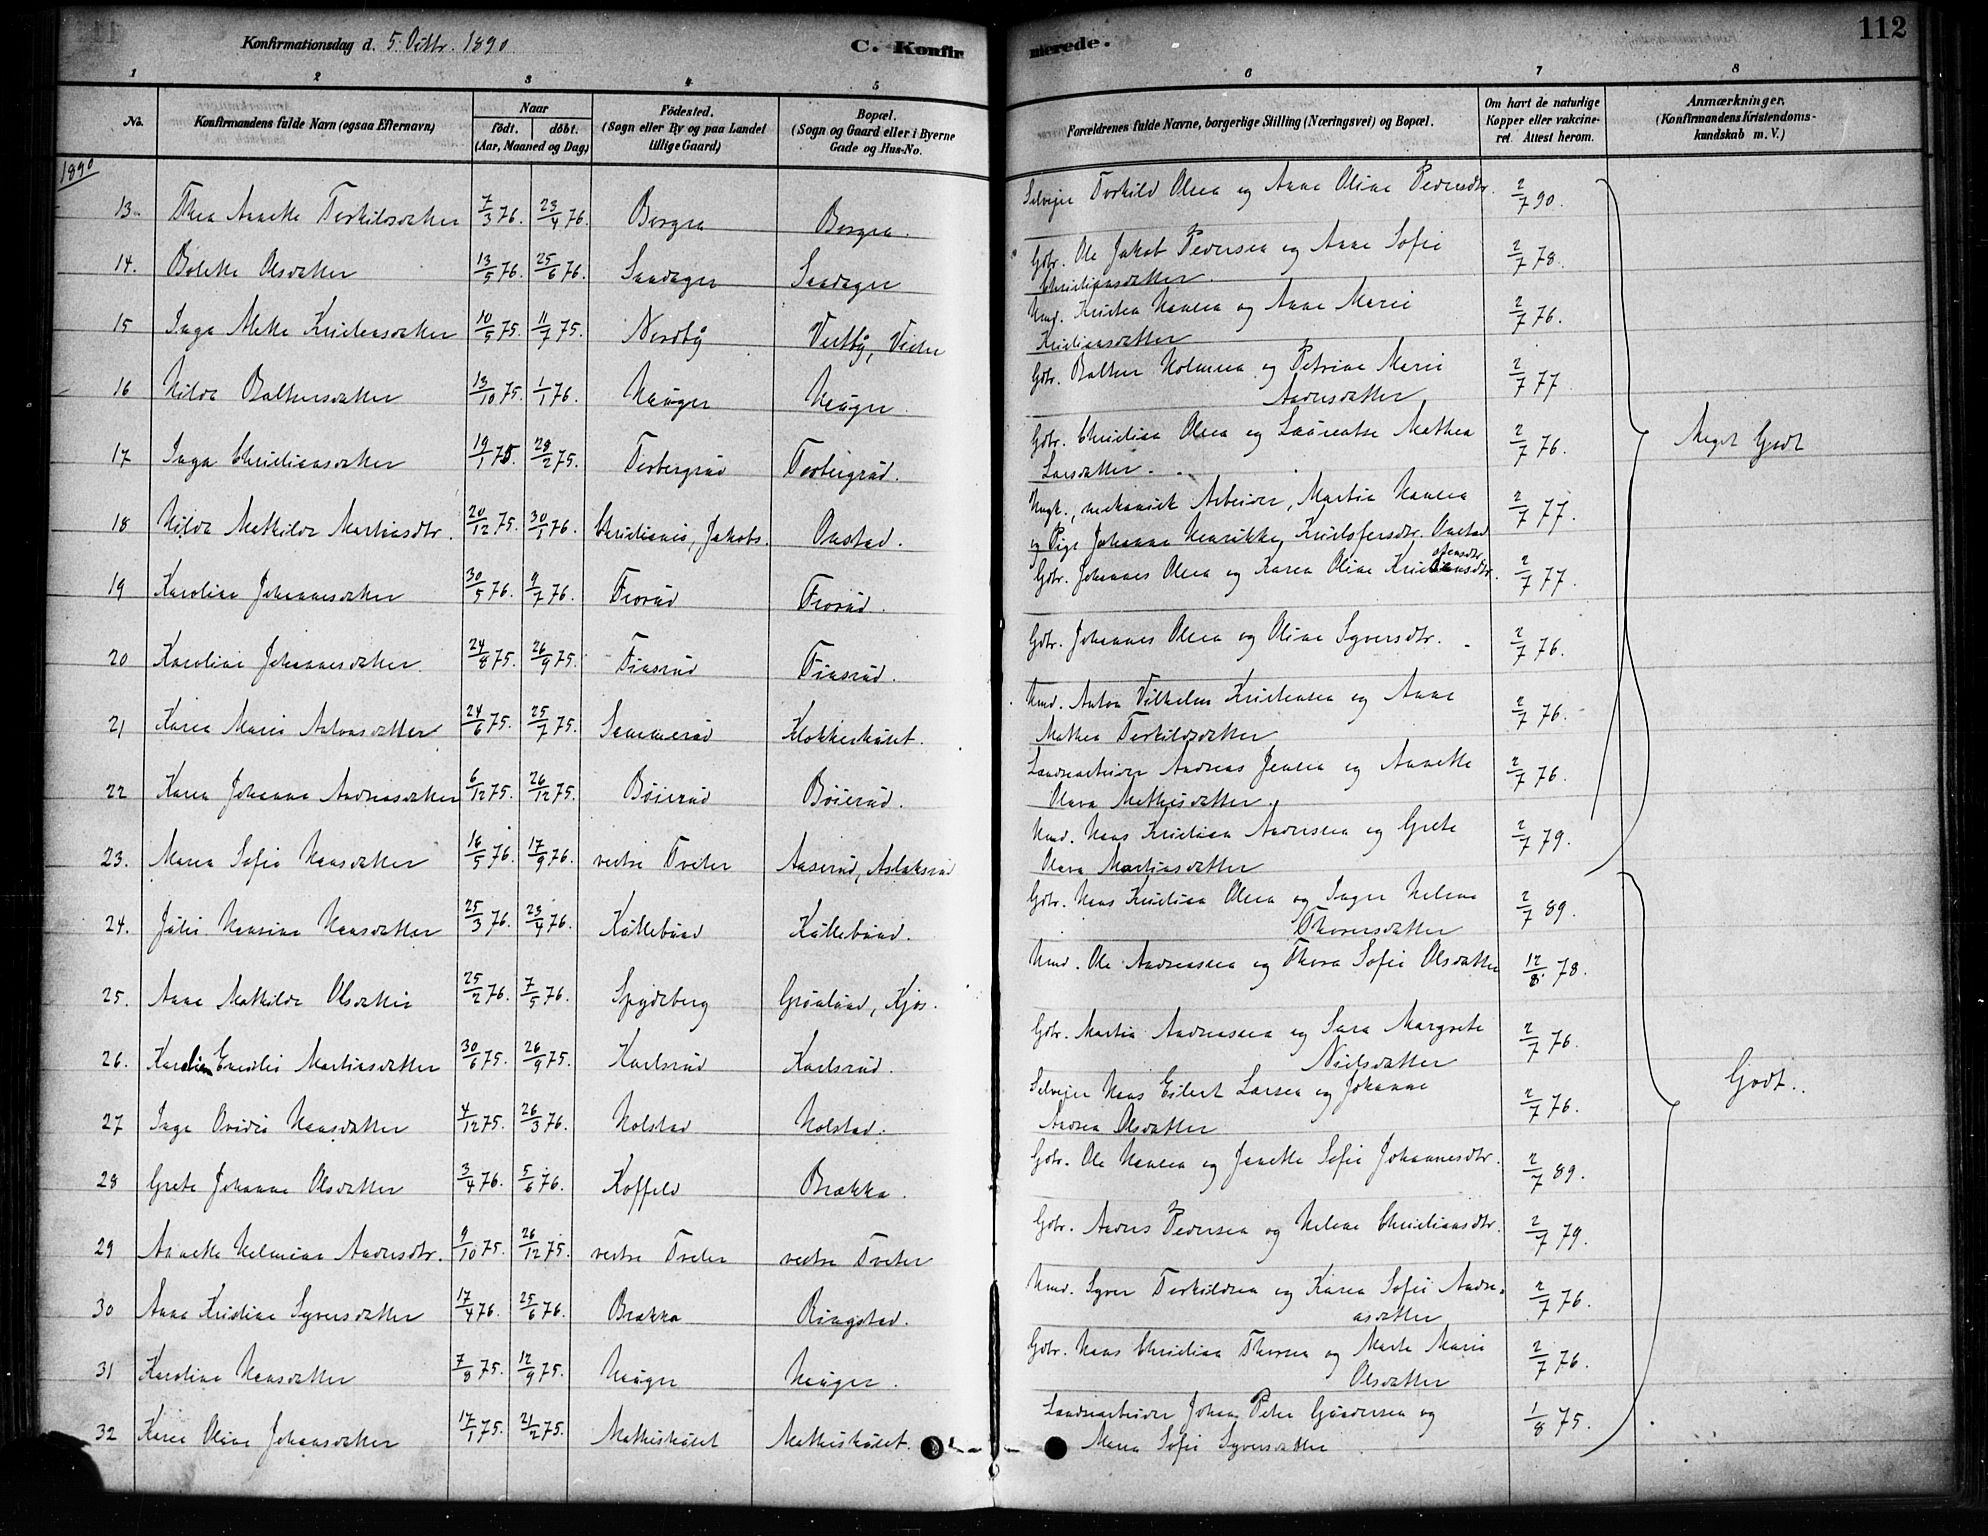 Konfirmationsdag d. 5. Octbr. 1890 C. Konfirmerede. 112
1 2 3 4 5 6 7 8
No. Konfirmandens fulde Navn (ogsaa Efternavn) Naar født. døbt. (Aar, Maaned og Dag) Fødested. (Sogn eller By og paa Landet tillige Gaard) Bopæl. (Sogn og Gaard eller i Byerne Gade og Hus-No. Forældrenes fulde Navne, borgerlige Stilling (Næringsvei) og Bopæl. Om havt de naturlige Kopper eller vakcineret. Attest herom. Anmærkninger. (Konfirmandens Kristendomskundskab m. V.)
1890
13. Thea Annette Torkildsdatter 7/3 76. 23/4 76. Borgen Borgen. Selveier Torkild Olsen og Anne Oline Pedersdtr. 2/7 90.
14. Bolette Olsdatter 13/5 76. 25/6 76. Sandager Sandager Gbr. Ole Jakob Pedersen og Anne Sofie
Christiansdatter. 2/7 78.
15 Inga Mette Kristensdatter 10/5 75. 11/7 75. Nordby Vestby, Vester Hmd. Kristen Hansen og Anne Marie
Kristiansdatter 2/7 76.
16 Hilda Baltzersdatter 13/10 75. 1/1 76. Hauger Hauger. Gbr. Baltzer Holmsen og Petrine Marie
Andersdatter 2/7 77
17 Inga Christiansdatter 19/1 75. 28/2 75. Torbergrud Torbergrud. Gbr. Christian Olsen og Laurentse Mathea
Larsdatter. 2/7 76.
18 Hilda Mathilde Martinsdtr. 20/12 75. 30/1 76. Christiania, Jakobs. Onstad. Ungk., mekanisk Arbeider, Martin Hansen
og Pige Johanne Henrikke Kristofersdtr. Onstad 2/7 77.
19 Karoline Johannesdatter 30/5 76. 9/7 76. Frorud Frorud. Gbr. Johannes Olsen og Karen Oline Kristofersdtr. 2/7 77.
20 Karoline Johannesdatter 24/8 75. 26/9 75. Finsrud Finsrud. Gbr. Johannes Olsen og Oline Syversdtr. 2/7 76.
21 Karen Marie Antonsdatter 24/6 75. 25/7 75. Sammerud Klokkerhuset. Hmd. Anton Vilhelm Kristensen og Anne
Mathea Torkildsdatter 2/7 76.
22 Karen Johanne Andreasdatter 6/12 75. 26/12 75. Böierud Böierud. Landsarbeider Andreas Jensen og Annette
Olava Mathisdatter. 2/7 76.
23. Maren Sofie Hansdatter 16/5 76. 17/9 76. vestre Tveter Aaserud, Aslaksrud Hmd. Hans Kristian Andersen og Grete
Olava Martinsdatter 2/7 79.
Meget Godt
24. Julie Hansine Hansdatter 25/3 76. 23/4 76. Kullebund Kullebund. Gbr. Hans Kristian Olsen og Inger Helene
Thoresdatter 2/7 89.
25. Anne Mathilde Olsdatter 25/2 76. 7/5 76. Spydeberg Grönlund, Kjos. Hmd. Ole Andreassen og Thora Sofie Olsdatter 12/8 78.
26. Karoline Emilie Martinsdatter 30/6 75. 26/9 75. Karlsrud Karlsrud. Gbr. Martin Andreassen og Sara Margrete
Nielsdatter 2/7 76.
27 Inga Ovidie Hansdatter 4/12 75. 26/3 76. Holstad Holstad. Selveier Hans Eilert Larsen og Johanne
Andrea Olsdatter 2/7 76.
28 Grete Johanne Olsdatter 3/4 76. 5/6 76. Koffeld Brekka. Gbr. Ole Hansen og Janette Sofie Johannesdtr. 2/7 89.
29 Annette Helmine Andersdtr. 9/10 75. 26/12 75. vestre Tveter vestre Tveter Gbr. Anders Pedersen og Helene Christiansdtr. 2/7 79.
30 Anne Kristine Syversdatter 17/4 76. 25/6 76. Brekka Ringstad. Hmd. Syver Torkildsen og Karen Sofie Andreasdatter 2/7 76.
31 Karoline Hansdatter 7/8 75. 12/9 75. Hauger Hauger. Gbr. Hans Christian Thoresen og Marte Marie
Olsdatter 2/7 76.
32 Karen Oline Johansdatter 17/1 75. 21/2 75. Mathishuset Mathishuset. Landsarbeider Johan Peter Gundersen og
Maren Sofie Syversdatter 1/8 75.
Godt.